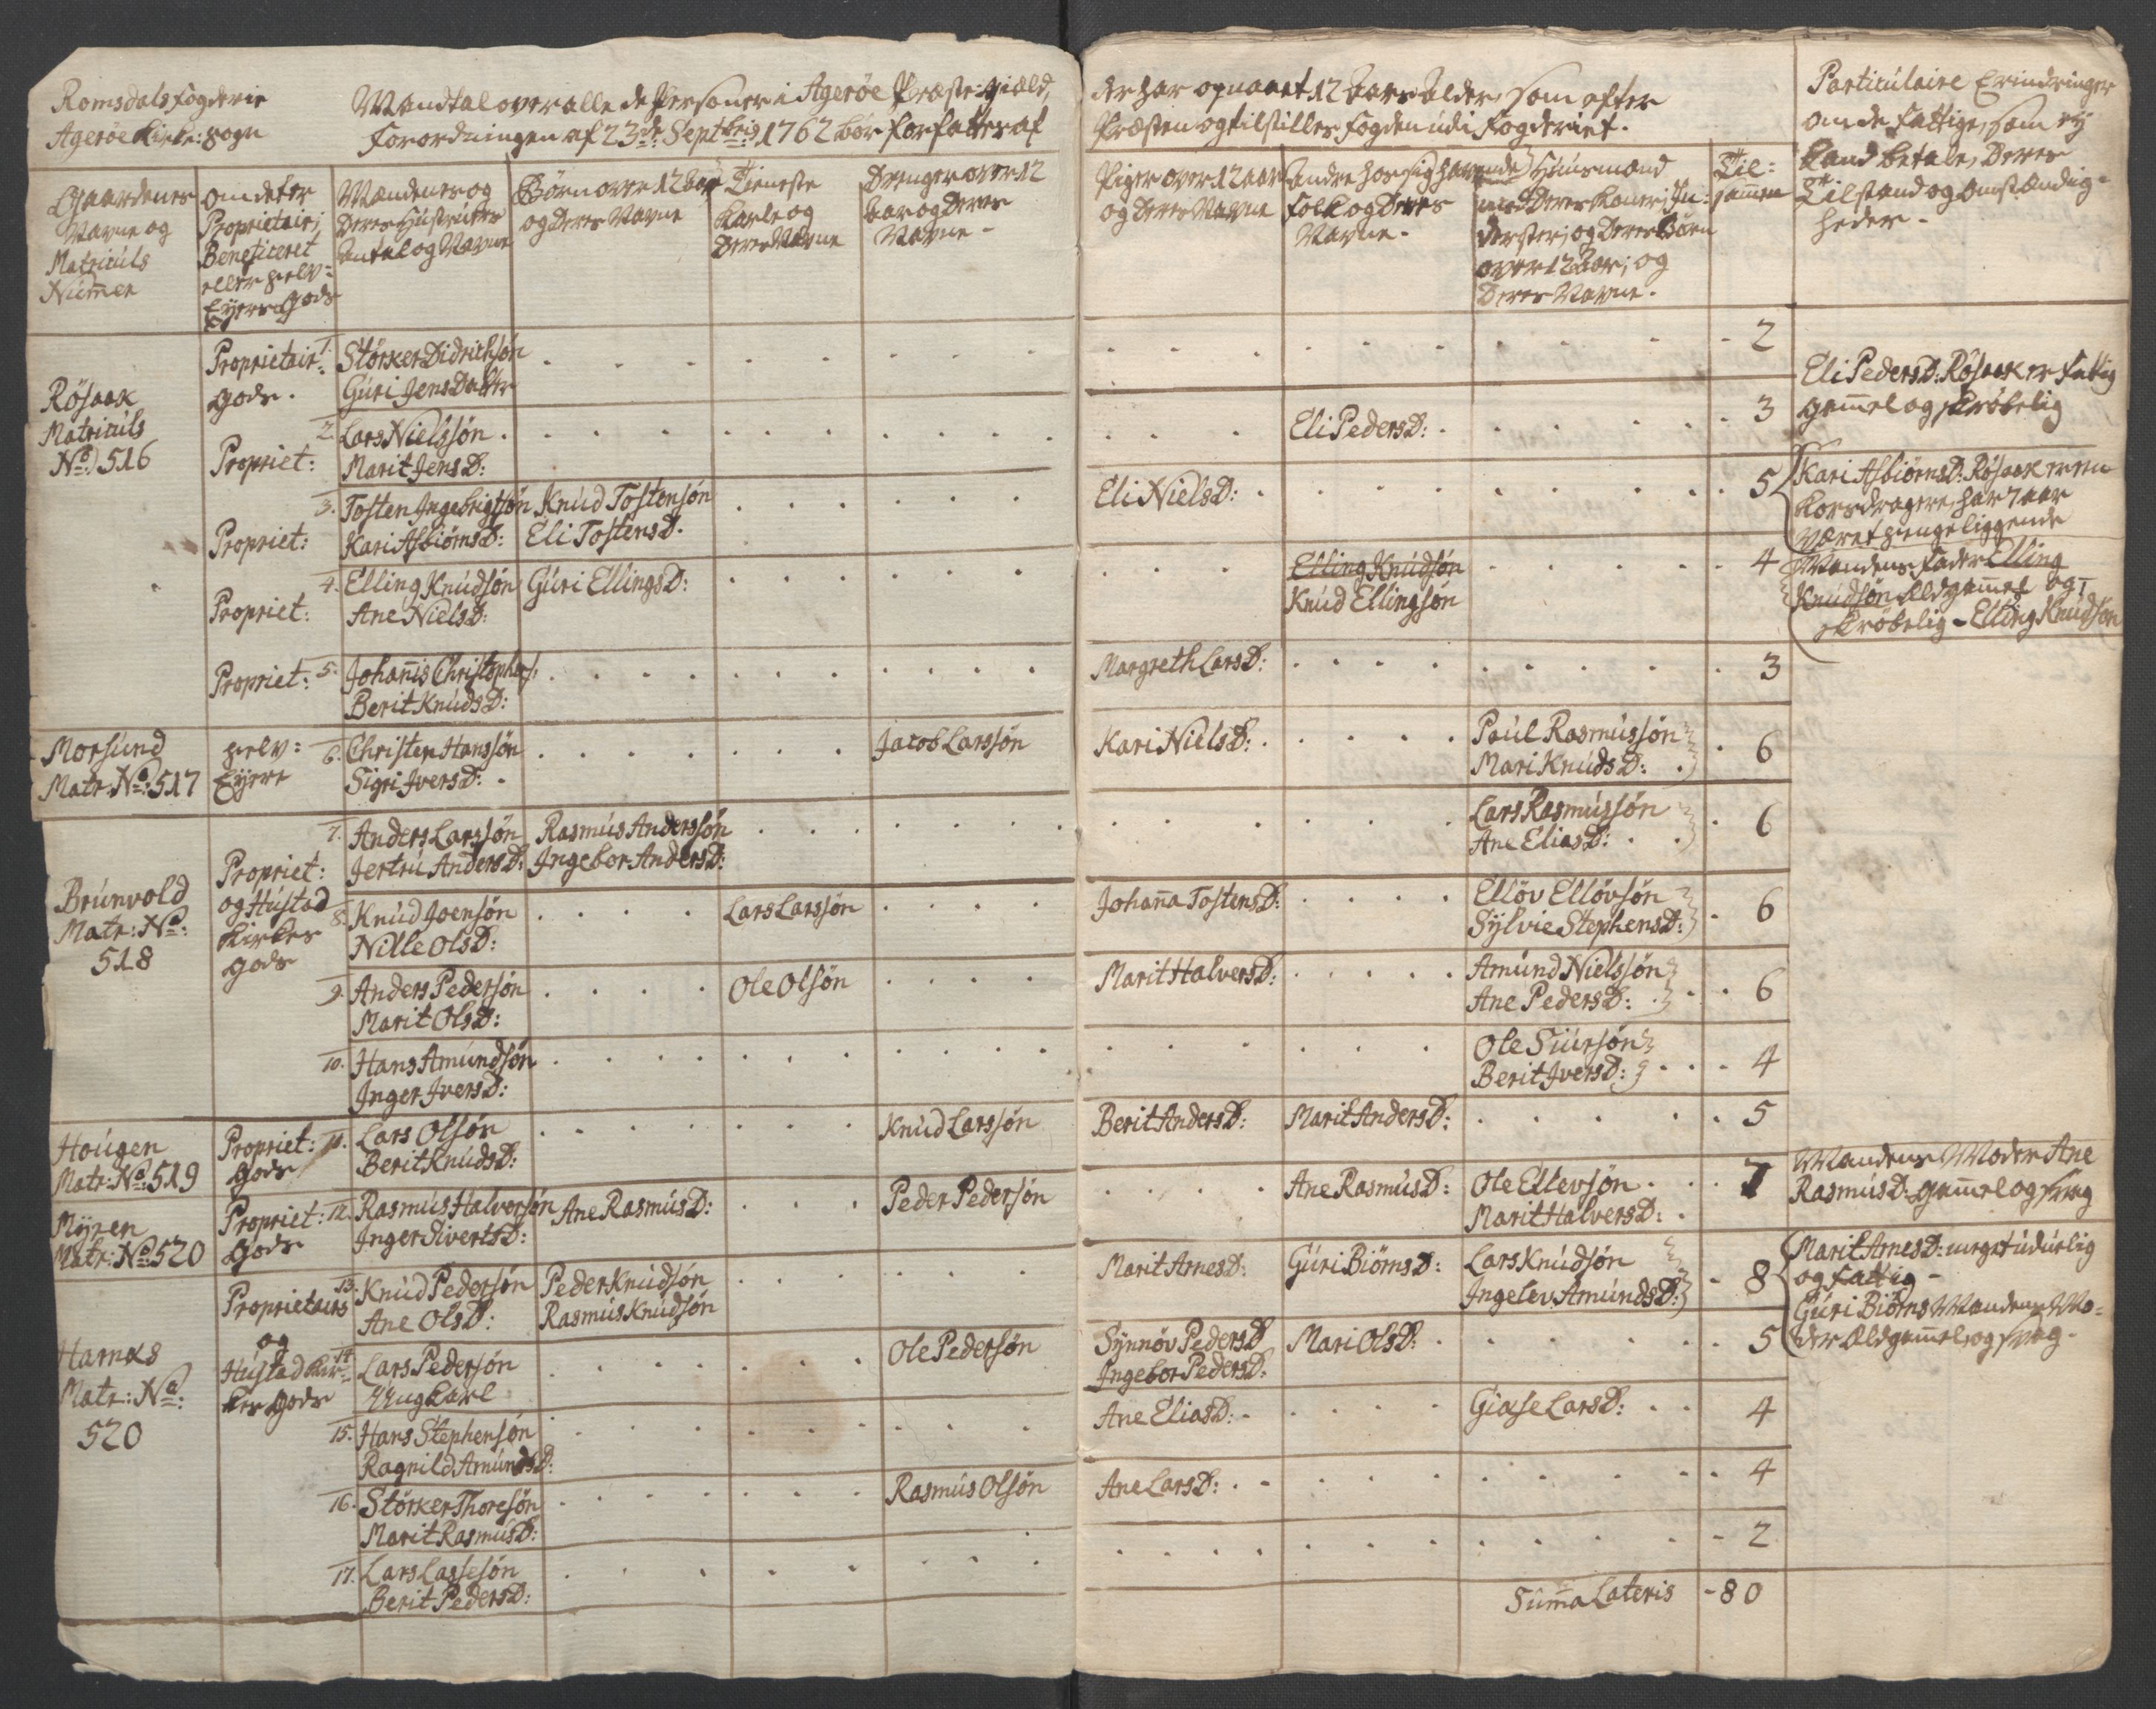 Romsdals Fogderie
Agerøe Kirke: Sogn
Mandtal over alle de Personer i Agerøe Præste-Giæld,
Forordningen af 23de Septbris 1762 bør forfattes af
der har opnaaet 12 Aars Alder, som efter
Præsten og tilstilles Fogden udi Fogderiet.
Gaardenes
Navne og
Matriculs
Numer
Om det er
Proprietair,
Beneficeret
eller Selv-
Eyer Gods
Mandenes og
Deres Hustruers
Antal og Navne
Børn over 12 Aar
og Deres Navne
Tieneste
Karle og
Deres Navne
Drenger over 12
Aar og Deres
Navne -
Piger over 12 Aar
og Deres Navne
Andre hos sig havende
Folk og Deres
Navne -
Huusmænd
med Deres Koner; In-
derster, og Deres Børn
over 12 Aar; og
Deres Navne.
Til-
sammen
Particulaire Erindringer
om de Fattige, som ey
Kand betale, Deres
Tilstand og Omstændig-
heder -
Røsaak
Matriculs
No: 516
Proprietair
Gods.
1. Størker Didrichsøn
Guri Jens Datter
2
Propriet:
2. Lars Nielsøn
Marit Jens D:
Eli Peders D:
3
Eli Peders D: Røsaak er fattig
gammel og skrøbelig
Propriet:
3. Tosten Ingebrigtsøn
Kari Asbiørns D:
Knud Tostensøn
Eli Tostens D.
Eli Niels D:
5
Kari Asbiørns D: Røsaak er en
Korsdragere, har 7 Aar
Været sengeliggende
Propriet:
4. Elling Knudsøn
Ane Niels D:
Guri Ellings D:
Elling Knudsøn
Knud Ellingsøn
4
Mandens Fader Elling
Knudsøn Eldgammel og
skrøbelig - Elling Knudsøn
Propriet:
5. Johannis Christophers:
Berit Knuds D:
Margreth Lars D:
3
Morsund
Matr: No: 517
Selv-
Eyere
6. Christen Hanssøn
Sigri Ivers D:
Jacob Larssøn
Kari Niels D:
Paul Rasmussøn
Mari Knuds D:
6
Brunvold
Matr: No:
518
Propriet:
og Hustad
Kirkes
Gods
7. Anders Larssøn
Jertru Anders D:
Rasmus Anderssøn
Ingebor Anders D:
Lars Rasmussøn
Ane Elias D:
6
8. Knud Joensøn
Nille Ols D:
Lars Larssøn
Johanna Tostens D:
Elløv Elløvsøn
Sylvie Stephens D:
6
9. Anders Pedersøn
Marit Ols D:
Ole Olsøn
Marit Halvers D:
Amund Nielssøn
Ane Peders D:
6
10. Hans Amundsøn
Inger Ivers D:
Ole Siursøn
Berit Ivers D:
4
Hougen
Matr: No: 519
Propriet:
Gods
11. Lars Olsøn
Berit Knuds D:
Knud Larssøn
Berit Anders D:
Marit Anders D:
5
Myren
Matr: No: 520
Propriet:
Gods
12. Rasmus Halversøn
Inger Siverts D:
Ane Rasmus D:
Peder Pedersøn
Ane Rasmus D:
Ole Ellevsøn
Marit Halvers D:
7
Mandens Moder Ane
Rasmus D: gammel og svag
Harnæs
Matr: No:
520
Proprietairs
og
Hustad Kir-
kes Gods
13. Knud Pedersøn
Ane Ols D:
Peder Knudsøn
Rasmus Knudsøn
Marit Arnes D:
Guri Biørns D:
Lars Knudsøn
Ingelev Amunds D:
8
Marit Arnes D: meget uduelig
og fattig -
Guri Biørns Mandens Mo-
der Eldgammel og svag -
14. Lars Pedersøn
Ung Karl
Ole Pedersøn
Synnøv Peders D
Ingebor Peders D:
Mari Ols D:
5
15. Hans Stephensøn
Ragnild Amunds D:
Ane Elias D:
Giase Lars D:
4
16. Størker Thoresøn
Marit Rasmus D:
Rasmus Olsøn
Ane Lars D:
4
17. Lars Lassesøn
Berit Peders D:
2
Suma Lateris - 80